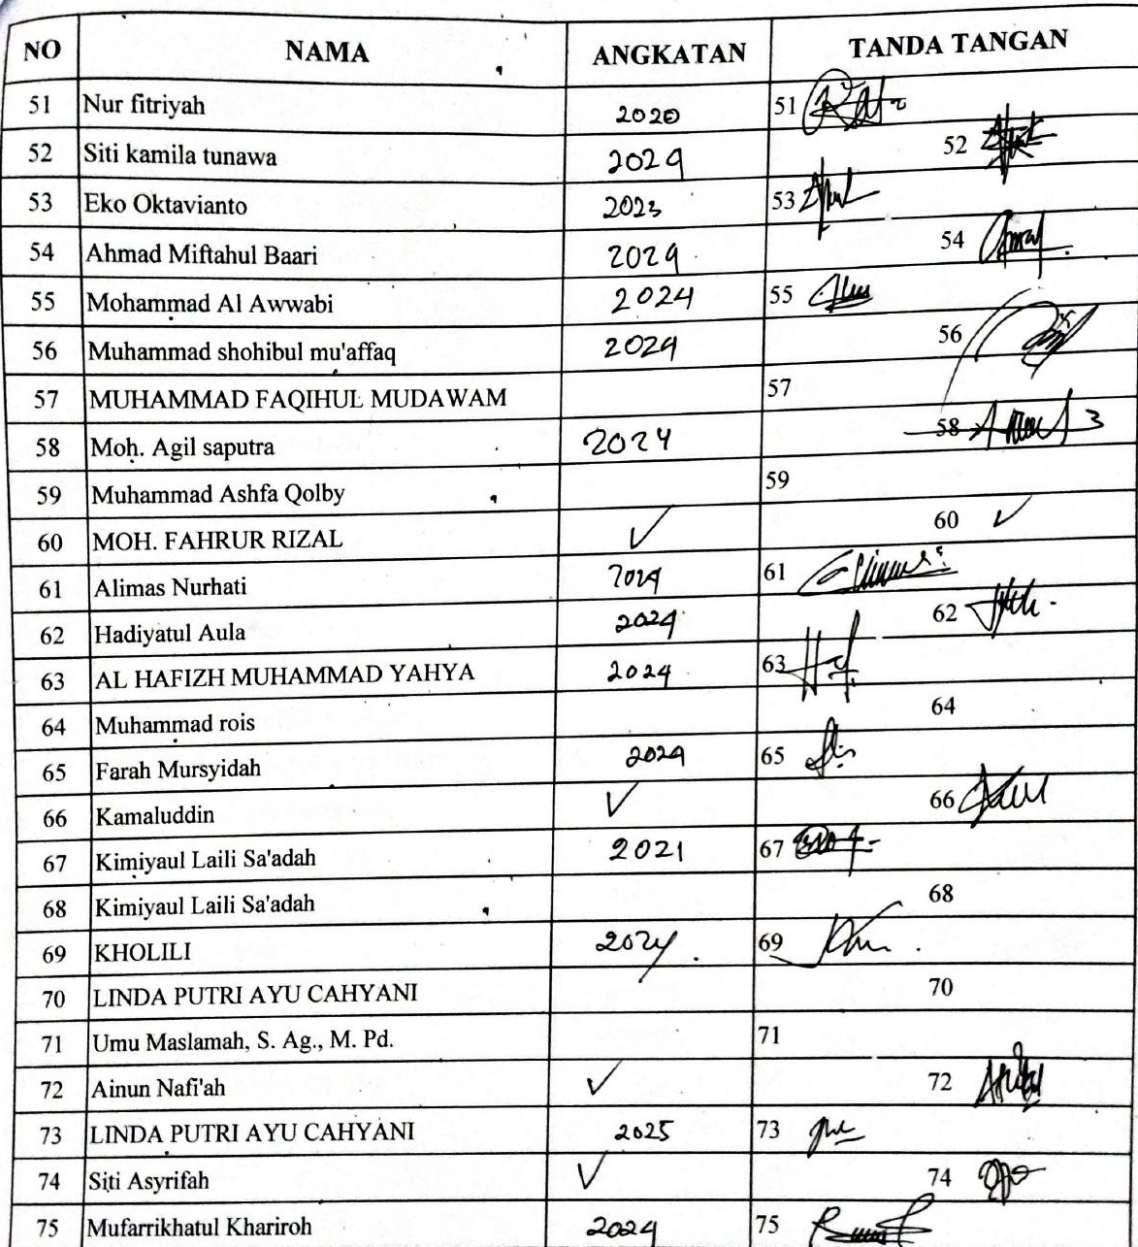 NO NAMA ANGKATAN TANDA TANGAN
51 Nur fitriyah 2020 51
52 Siti kamila tunawa 2024 52
53 Eko Oktavianto 2023 53
54 Ahmad Miftahul Baari 2024 54
55 Mohammad Al Awwabi 2024 55
56 Muhammad shohibul mu'affaq 2024 56
57 MUHAMMAD FAQIHUL MUDAWAM 57
58 Moh. Agil saputra 2024 58
59 Muhammad Ashfa Qolby 59
60 MOH. FAHRUR RIZAL ✓ 60 ✓
61 Alimas Nurhati 2024 61
62 Hadiyatul Aula 2024 62
63 AL HAFIZH MUHAMMAD YAHYA 2024 63
64 Muhammad rois 64
65 Farah Mursyidah 2024 65
66 Kamaluddin ✓ 66
67 Kimiyaul Laili Sa'adah 2021 67
68 Kimiyaul Laili Sa'adah 68
69 KHOLILI 2024 69
70 LINDA PUTRI AYU CAHYANI 70
71 Umu Maslamah, S. Ag., M. Pd. 71
72 Ainun Nafi'ah ✓ 72
73 LINDA PUTRI AYU CAHYANI 2025 73
74 Siti Asyrifah ✓ 74
75 Mufarrikhatul Khariroh 2024 75